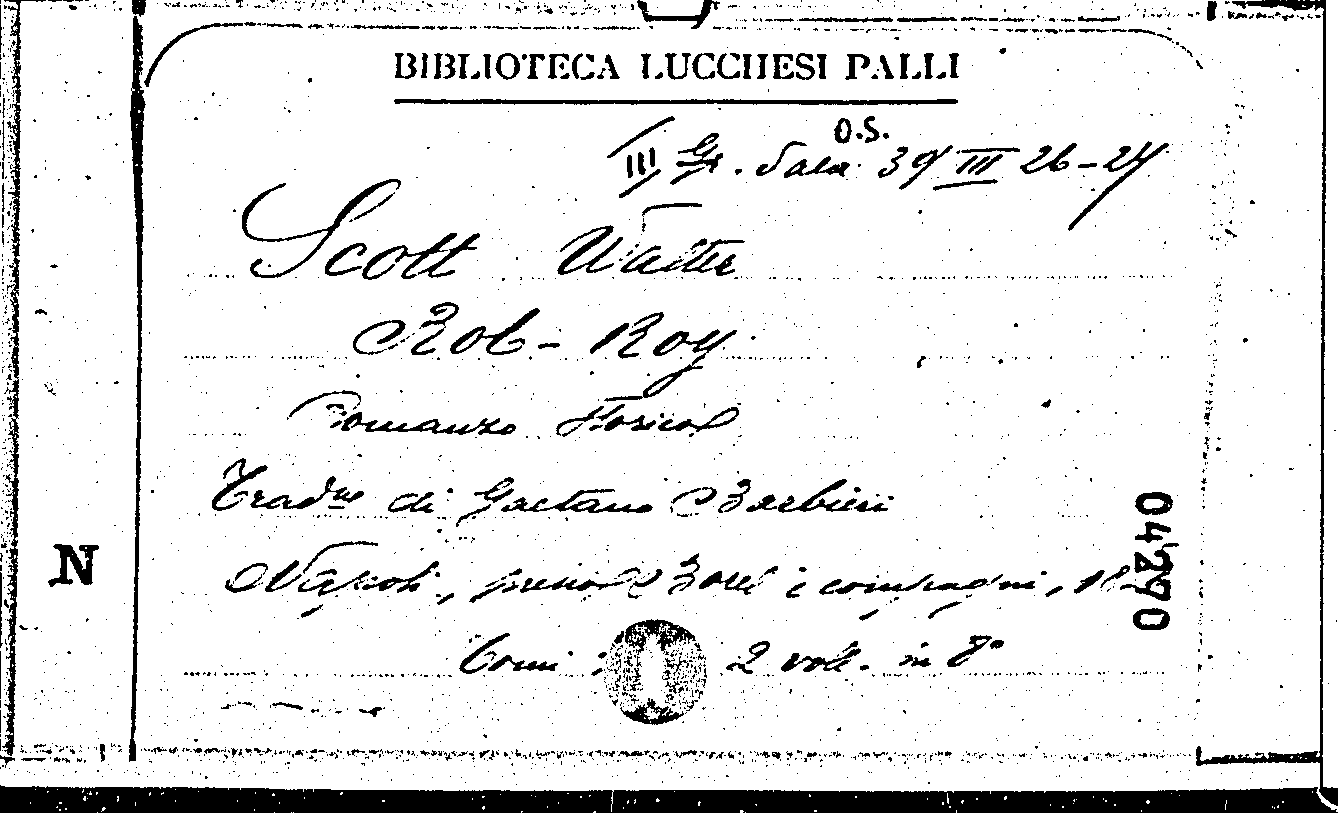 BIBLIOTECA LUCCHESI PALLI
O.S.
III Gr. Sala 39 III 26-27
Scott Walter
Rob-Roy
Romanzo Storico
Trad.ne di Gaetano Barbieri
Napoli, presso Borel e compagni, 18
Tomi : 2 voll. in 8°
N
04270